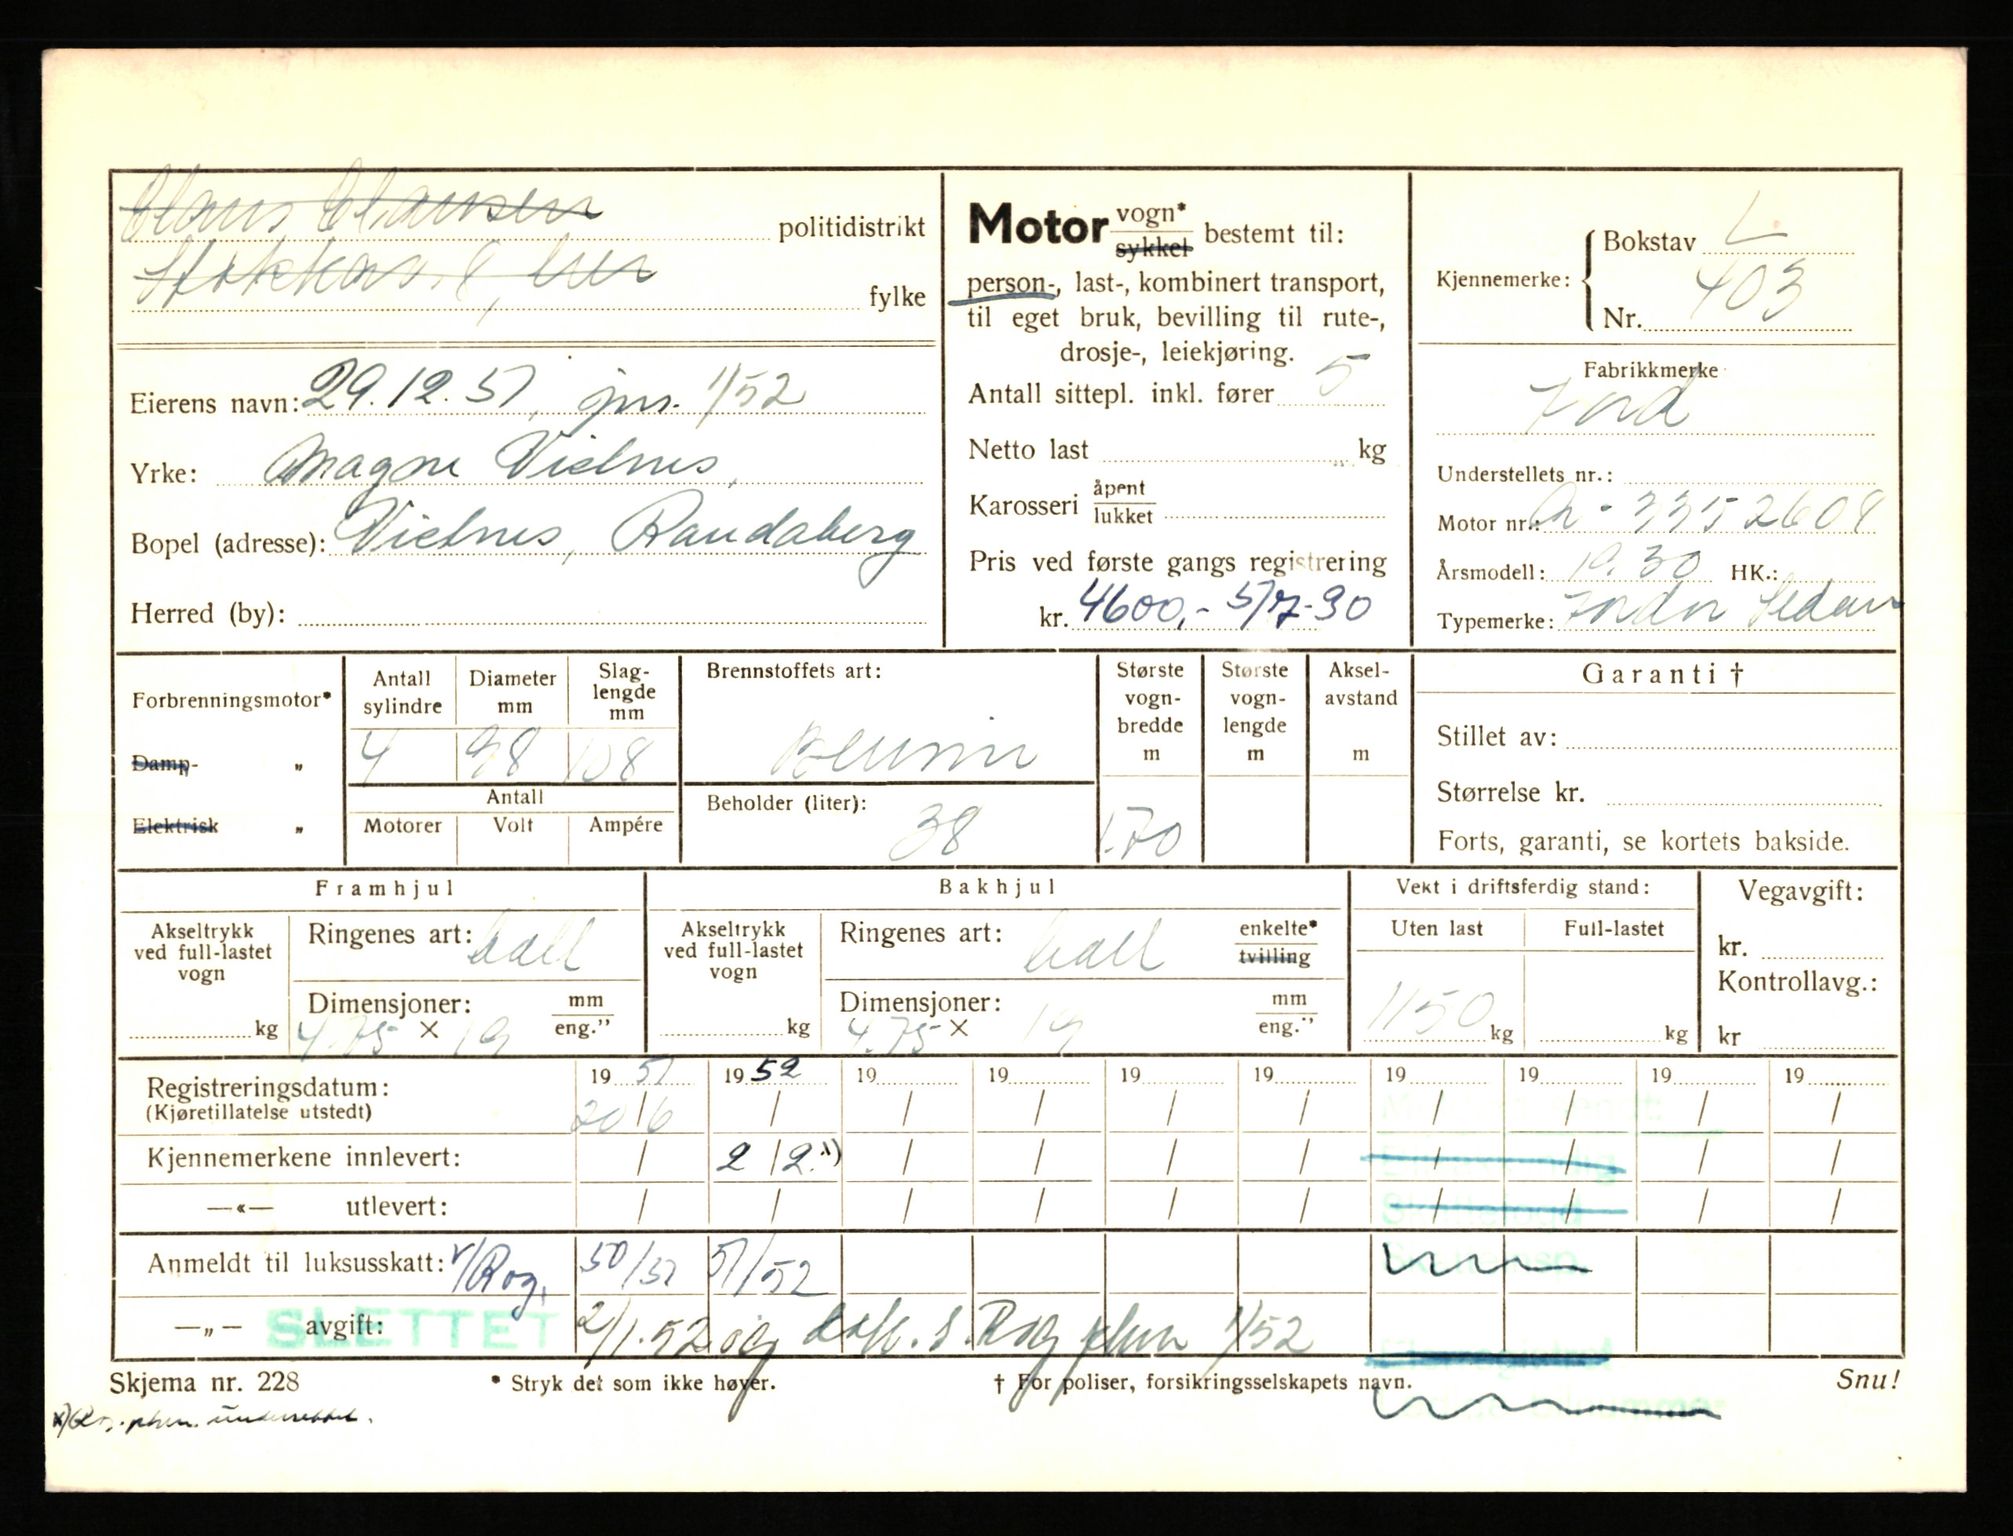 Claus Clausen politidistrikt
fylke
Motor vogn* sykkel bestemt til:
person-, last-, kombinert transport,
til eget bruk, bevilling til rute-,
drosje-, leiekjøring.
Antall sittepl. inkl. fører 5
Netto last kg
Karosseri åpent lukket
Pris ved første gangs registrering
kr. 4600,- 5/7-30
Kjennemerke: Bokstav L.
Nr. 403
Fabrikkmerke
Ford
Understellets nr.:
Motor nr.: A - 3352608
Årsmodell: 19.30 HK.:
Typemerke: Fordor Sedan
Eierens navn: 29.12.51, jnr. 1/52
Yrke: Magne Vistnes,
Bopel (adresse): Vistnes, Randaberg
Herred (by):
Forbrenningsmotor*
Damp- „
Elektrisk „
Antall sylindre
Diameter mm
Slag-lengde mm
4 98 108
Antall
Motorer Volt Ampére
Brennstoffets art:
Bensin
Beholder (liter):
38
Største vogn-bredde m
1.70
Største vogn-lengde m
Aksel-avstand m
Garanti †
Stillet av:
Størrelse kr.
Forts, garanti, se kortets bakside.
Framhjul
Akseltrykk ved full-lastet vogn
kg
Ringenes art: ball
Dimensjoner: mm eng.”
4.75 × 19
Bakhjul
Akseltrykk ved full-lastet vogn
kg
Ringenes art: ball enkelte* tvilling
Dimensjoner: mm eng.”
4.75 × 19
Vekt i driftsferdig stand:
Uten last Full-lastet
1150 kg kg
Vegavgift:
kr.
Kontrollavg.:
kr
Registreringsdatum: 19 51 19 52 19 19 19 19 19 19 19 19
(Kjøretillatelse utstedt) 20/6 / / / / / / / / /
Kjennemerkene innlevert: / 2/2. x) / / / / / / / /
—«— utlevert: / / / / / / / / / /
Anmeldt til luksusskatt: v/Rog. 50/51 51/52
—„— avgift: 2/1.52 og 1/52
SLETTET
Skjema nr. 228 * Stryk det som ikke høyer. † For poliser, forsikringsselskapets navn. Snu!
x) underrettet.